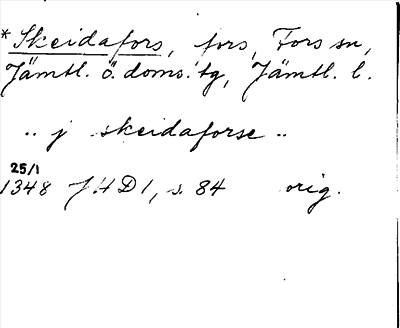 *Skeidafors, fors, Fors sn,
Jämtl. ö. doms. tg, Jämtl. l.
.. j skeidaforse ..
25/1
1348 JHD 1, s. 84 orig.